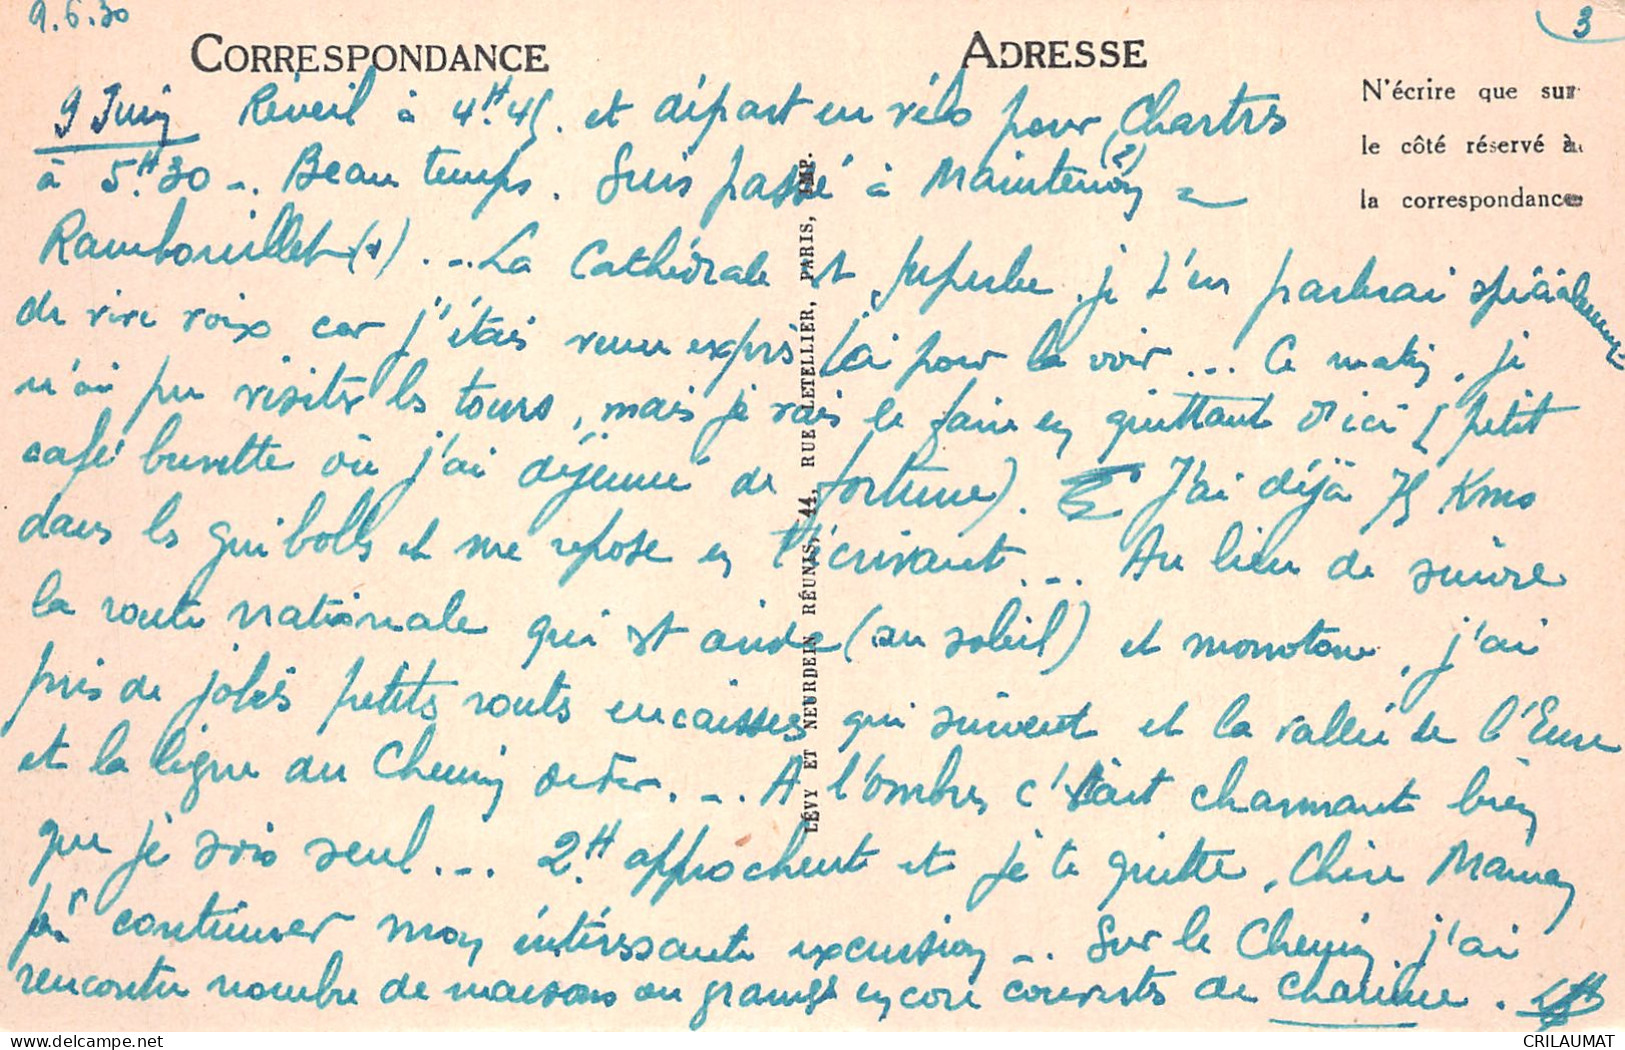 9.6.30
3
CORRESPONDANCE
ADRESSE
N'écrire que sur
le côté réservé au
la correspondance
9 Juin Réveil à 4H.45. et départ en vélo pour Chartres
à 5.H30 -.. Beau temps. Suis passé à Maintenon (2) =
Rambouillet (1) . -. La Cathédrale est superbe, je t'en parlerai spécialement
de vive voix car j'étais venu exprès ici pour la voir ... Ce matin, je
n'ai pu visiter les tours, mais je vais le faire en quittant d'ici (petit
café buvette où j'ai déjeuné de fortune). J'ai déjà 75 Kms
dans les guibolles et me repose en t'écrivant. -. Au lieu de suivre
la route nationale qui est aride (au soleil) et monotone, j'ai
pris de jolies petites routes encaissées qui suivent et la vallée de l'Eure
et la ligne du Chemin de fer. -. A l'ombre, c'était charmant bien
que je sois seul. -. 2.H approchent et je te quitte, Chère Maman
pr continuer mon intéressante excursion -. Sur le Chemin, j'ai
rencontré nombre de maisons ou granges encore couvertes de chaume.
LÉVY ET NEURDEIN RÉUNIS, 44, RUE LETELLIER, PARIS, IMP.
CRILAUMAT